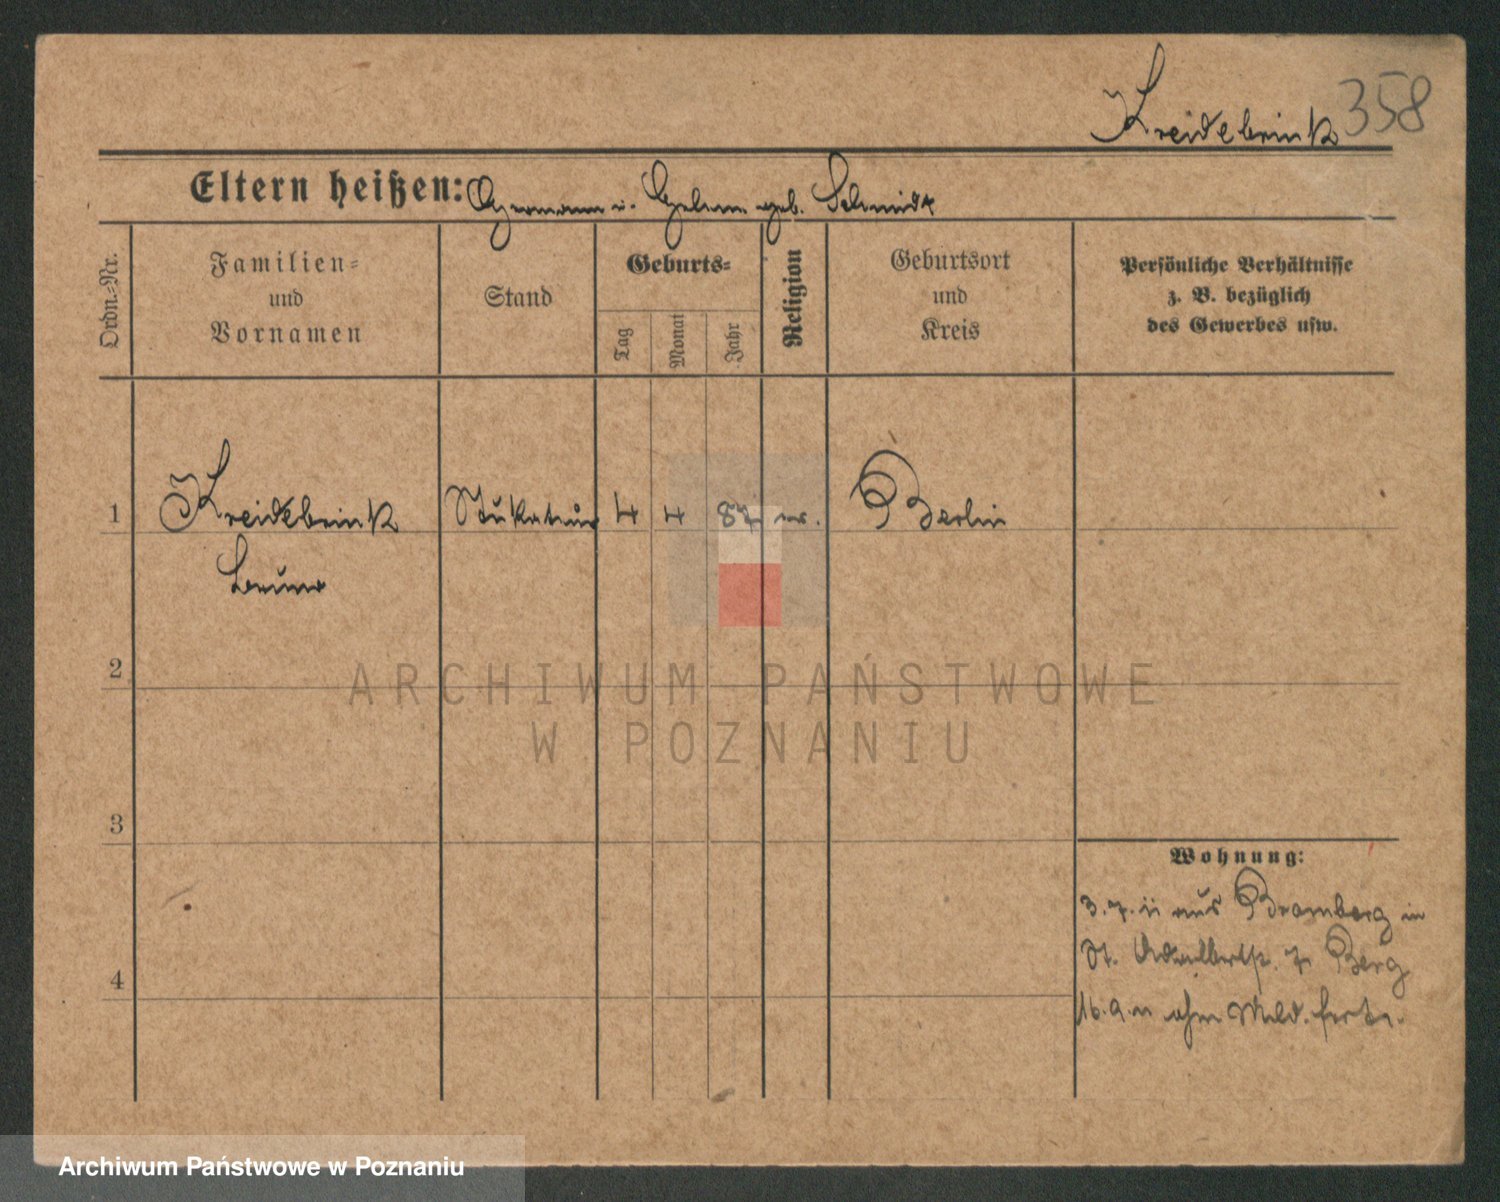 Kreidebrink 358
Eltern heißen: Hermann u. Helene geb. Schmidt
Ordn.-Nr.
Familien-
und
Vornamen
Stand
Geburts-
Tag
Monat
Jahr
Religion
Geburtsort
und
Kreis
Persönliche Verhältnisse
z. B. bezüglich
des Gewerbes usw.
1 Kreidebrink Stukateur 4 4 87 ev. Berlin
Bruno
2
3
4
Wohnung:
3. 7. 11 aus Bromberg in
St. Adalbertstr. 7 Berg
16. 9. 11 ohne Meld. fort
ARCHIWUM PAŃSTWOWE
W POZNANIU
Archiwum Państwowe w Poznaniu